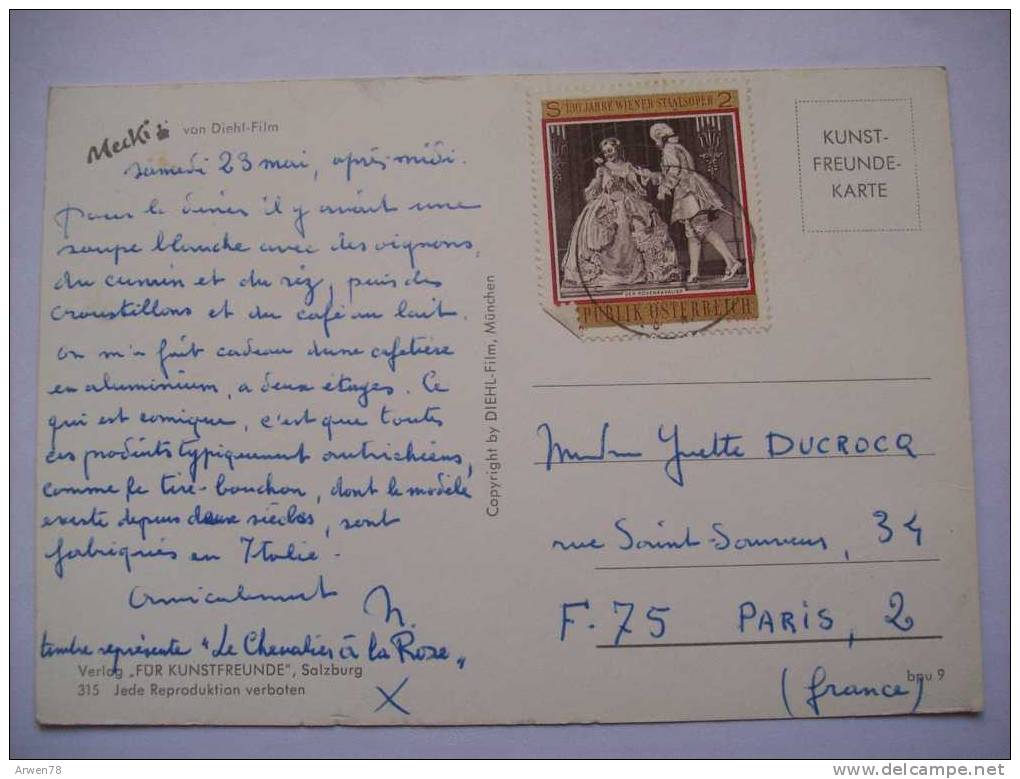 Mecki von Diehl-Film
samedi 23 mai, après-midi.
Pour le dîner il y avait une
soupe blanche avec des oignons
du cumin et du riz, puis des
croustillons et du café au lait.
on m'a fait cadeau d'une cafetière
en aluminium, a deux étages. Ce
qui est comique, c'est que toutes
ces produits typiquement autrichiens,
comme le tire-bouchon, dont le modèle
existe depuis deux siècles, sont
fabriqués en Italie.
Amicalement
N.
timbre représente "Le Chevalier à la Rose"
X
Verlag „FÜR KUNSTFREUNDE", Salzburg
315 Jede Reproduktion verboten
Copyright by DIEHL-Film, München
S 100 JAHRE WIENER STAATSOPER 2
DER ROSENKAVALIER
PUBLIK ÖSTERREICH
KUNST-
FREUNDE-
KARTE
Yvette DUCROCQ
rue Saint-Sauveur, 34
F-75 PARIS, 2
(france)
bnu 9
Arwen78
http://www.delcampe.net